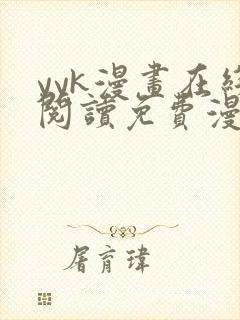 vvk漫畫在線
閱讀免費漫
屠育瑋